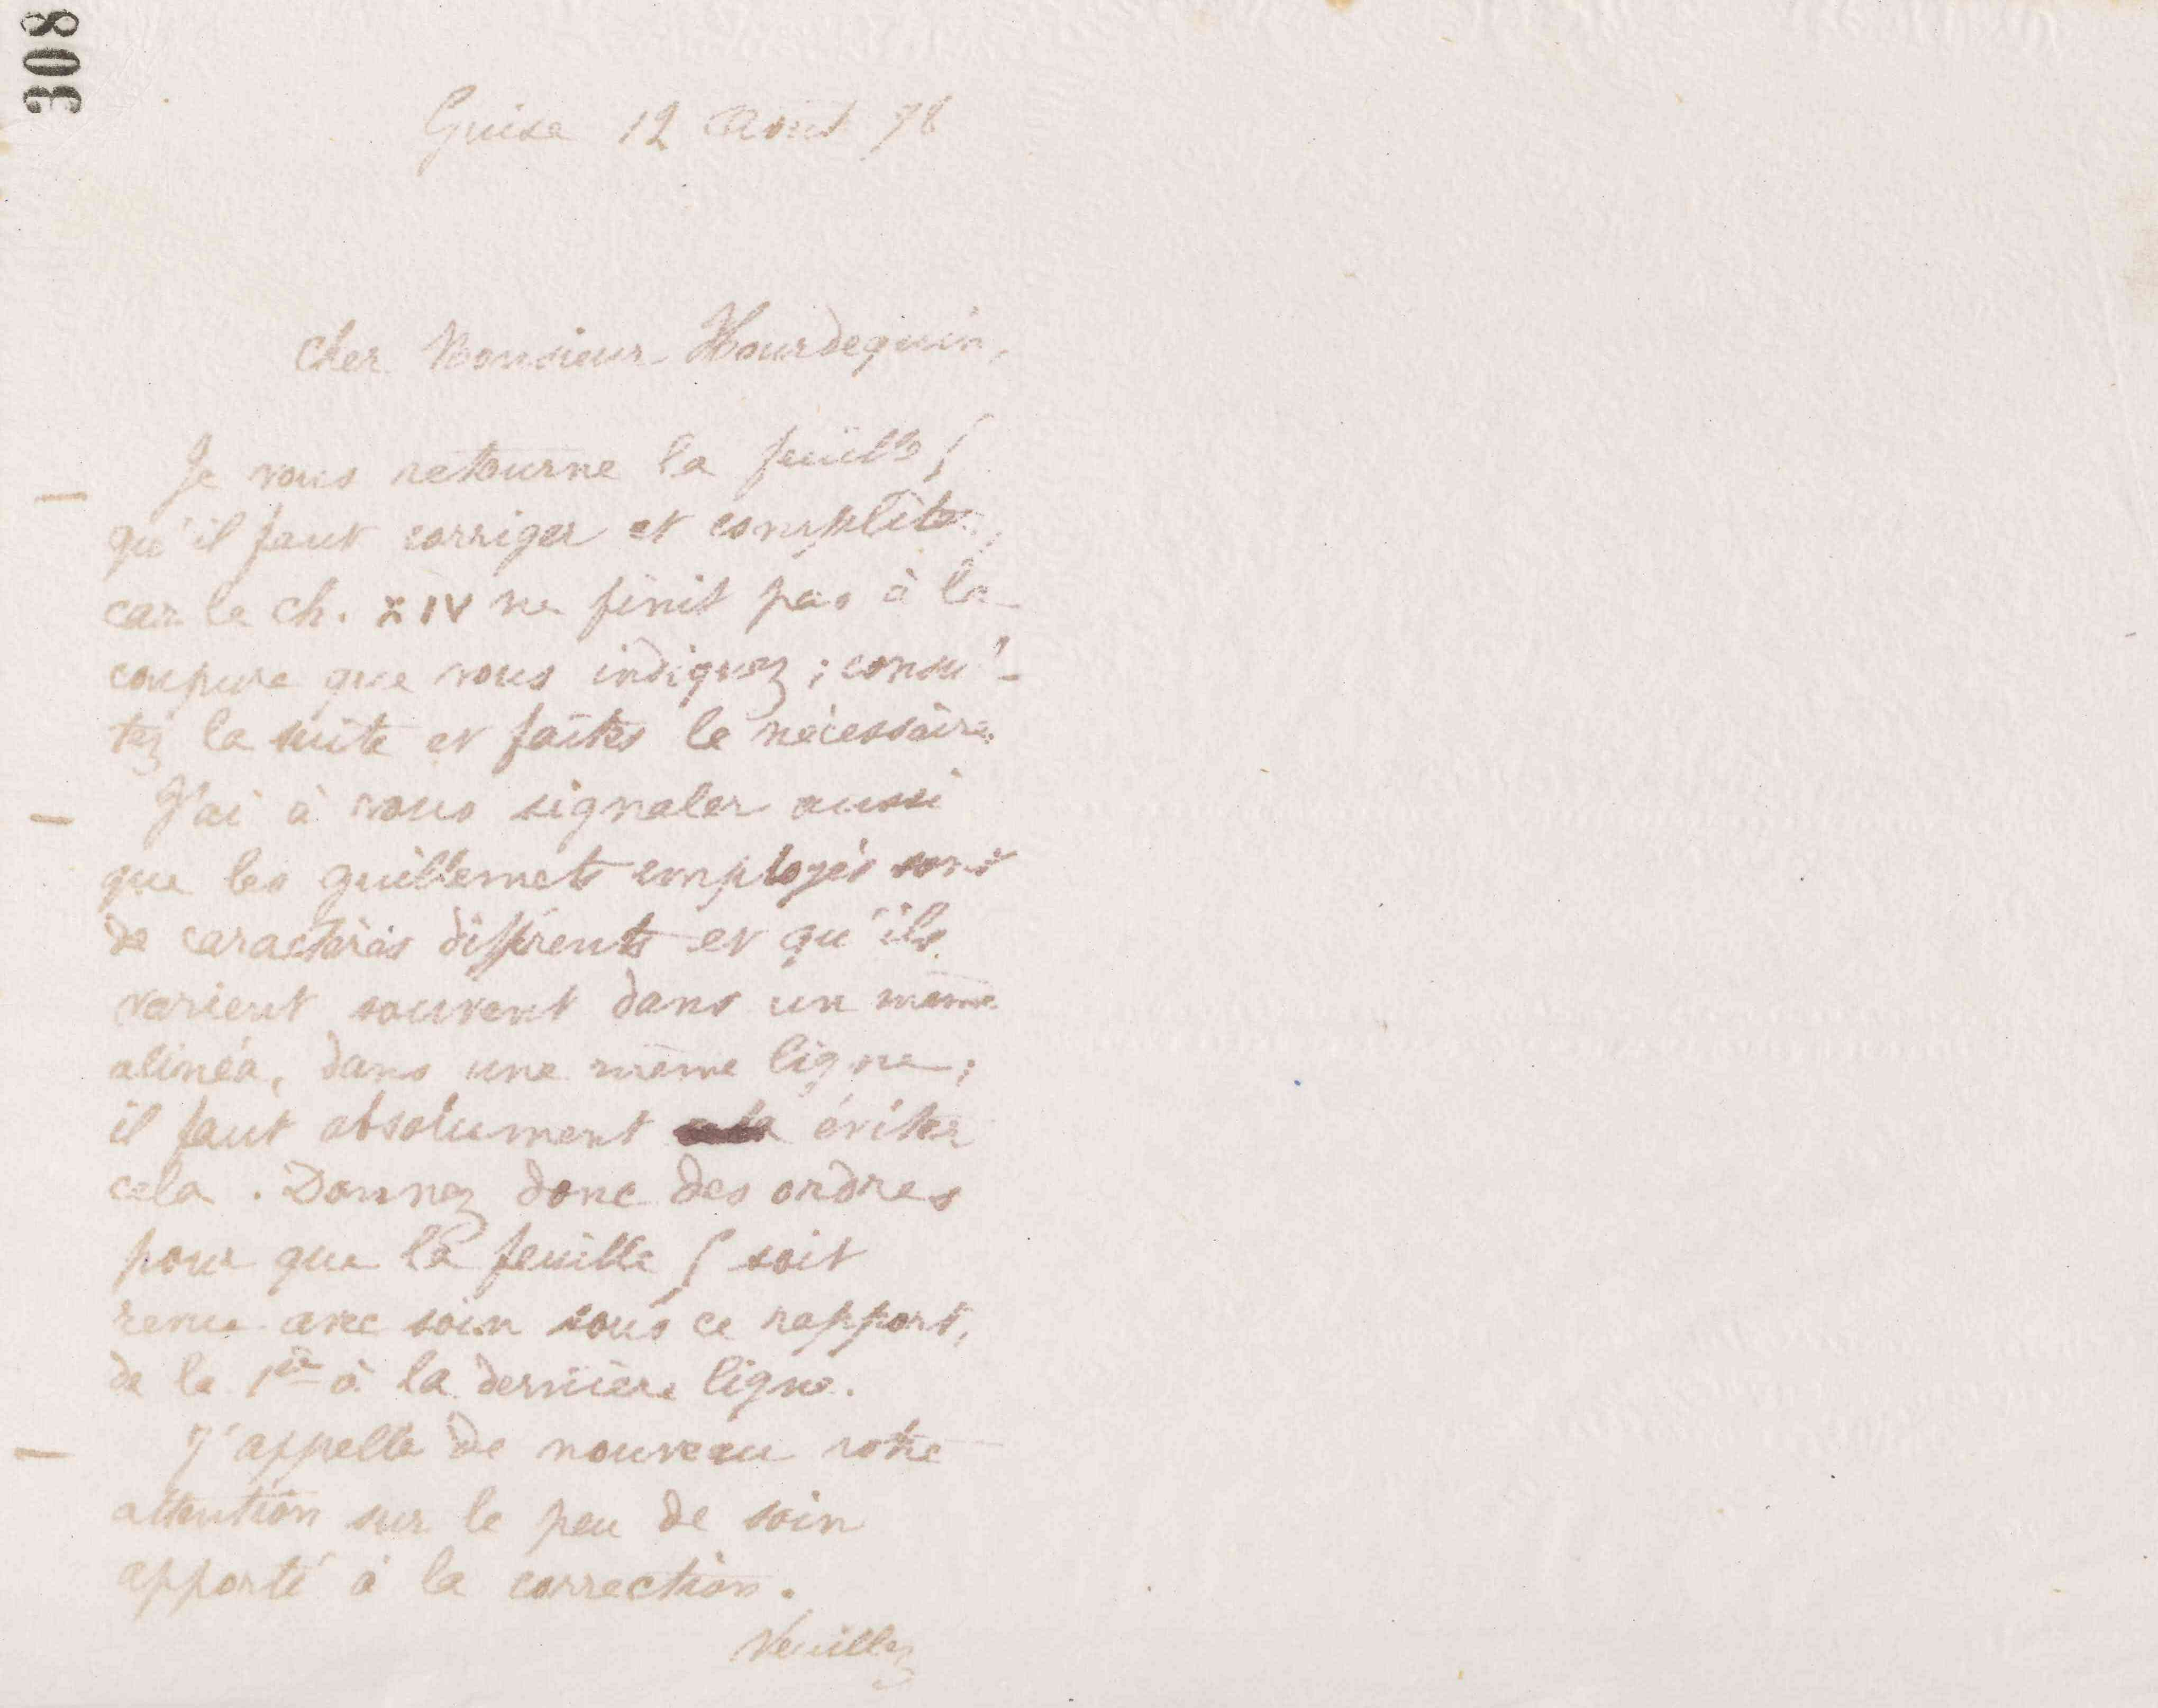 308
Guise 12 Août 78
Cher Monsieur Hourdequin,
Je vous retourne la feuille
qu'il faut corriger et compléter,
car le ch. XIV ne finit pas à la
coupure que vous indiquez ; consul-
tez la suite et faites le nécessaire.
J'ai à vous signaler aussi
que les guillemets employés sont
de caractères différents et qu'ils
varient souvent dans un même
alinéa, dans une même ligne ;
il faut absolument éviter
cela. Donnez donc des ordres
pour que la feuille soit
revue avec soin sous ce rapport,
de la 1ère à la dernière ligne.
J'appelle de nouveau votre
attention sur le peu de soin
apporté à la correction.
Veuillez